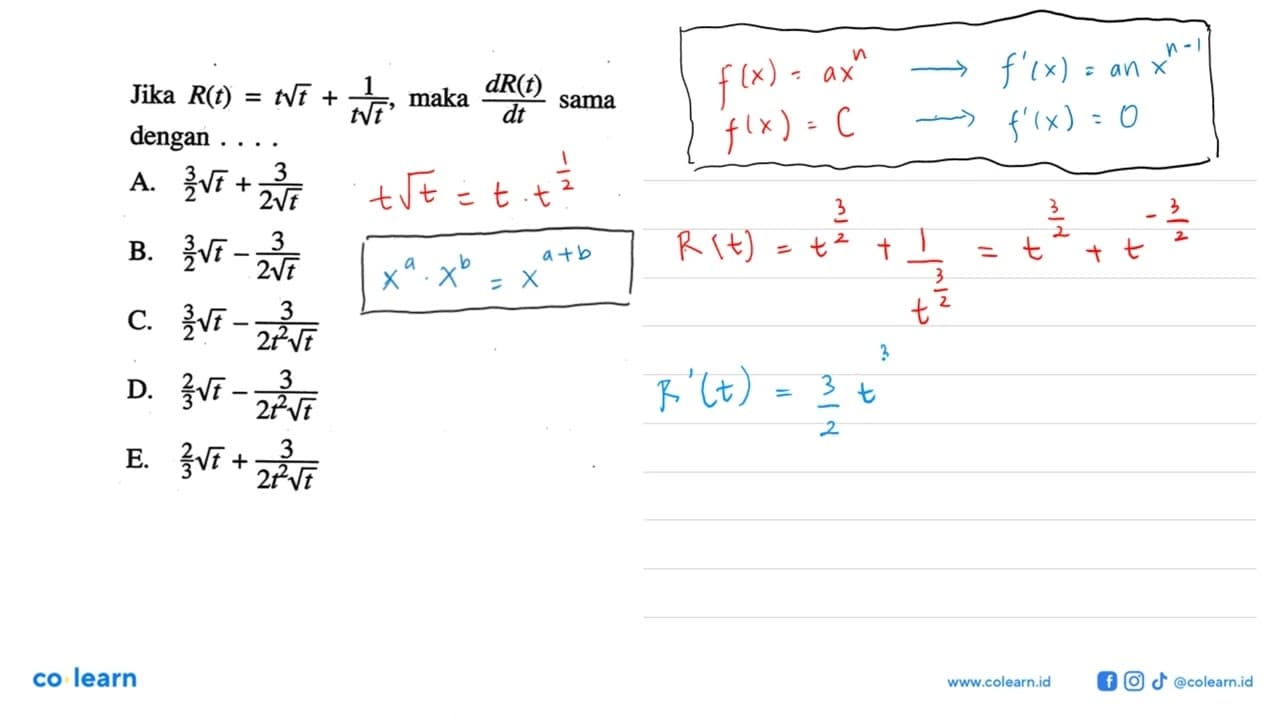 Jika R(t) = t√t + 1/(t√t), maka dR(t)/dt sama
dengan . . . .
A. 3/2 √t + 3/(2√t)
B. 3/2 √t − 3/(2√t)
C. 3/2 √t − 3/(2t²√t)
D. 2/3 √t − 3/(2t²√t)
E. 2/3 √t + 3/(2t²√t)
t√t = t · t^(1/2)
x^a · x^b = x^(a+b)
f(x) = ax^n → f'(x) = an x^(n-1)
f(x) = C → f'(x) = 0
R(t) = t^(3/2) + 1/t^(3/2) = t^(3/2) + t^(-3/2)
R'(t) = 3/2 t^3
co learn
www.colearn.id
@colearn.id